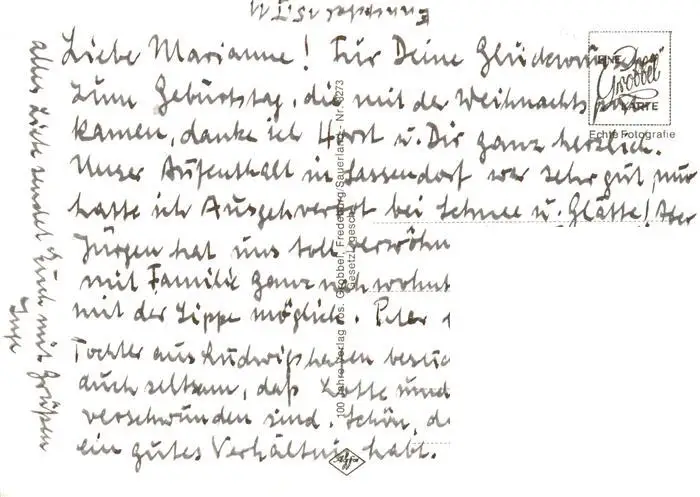 Liebe Marianne! Für Deine Glückwünsche
zum Geburtstag, die mit der Weihnachtspost
kamen, danke ich Horst u. Dir ganz herzlich.
Unser Aufenthalt in Sassendorf war sehr gut, nur
hatte ich Ausgehverbot bei Schnee u. Glätte! Aber
Jürgen hat uns toll verwöhn
mit Familie ganz nah wohnt
mit der Lippe möglich. Peter
Tochter aus Ludwigshafen besuc
auch seltsam, daß Lotte und
verschwunden sind. Schön, da
ein gutes Verhältnis habt.
alles Liebe sendet Euch mit Grüßen
Inge
EINE
Grobbel
KARTE
Echte Fotografie
100 Jahre Verlag Jos. Grobbel, Fredeburg/Sauerland - Nr. 8273
Gesetzl. gesch.
Agfa